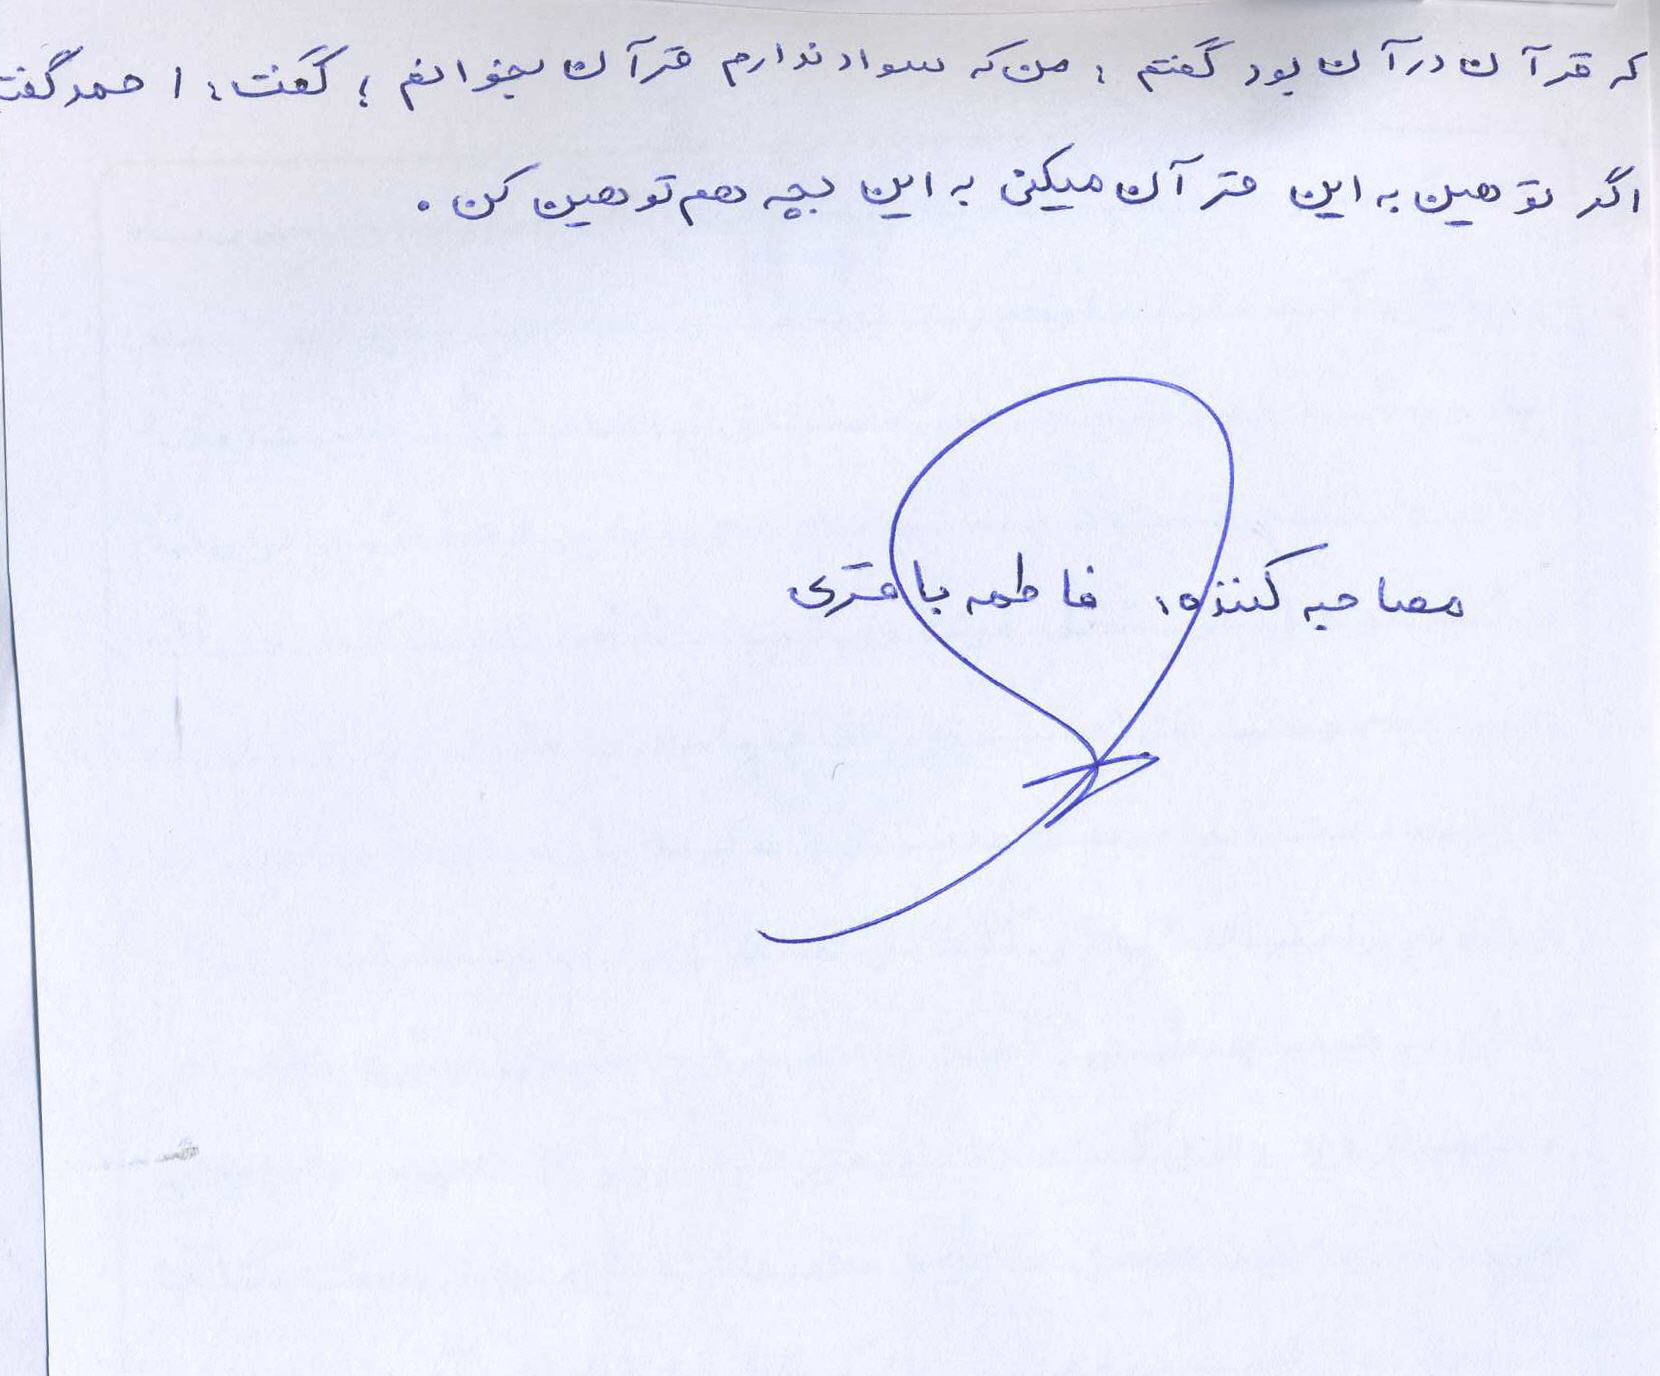 که قرآن در آن بود گفتم : من که سواد ندارم قرآن بخوانم ؛ گفت : احمد گفت
اگر توهین به این قرآن میکنی به این بچه هم توهین کن .
مصاحبه کننده : فاطمه باقری